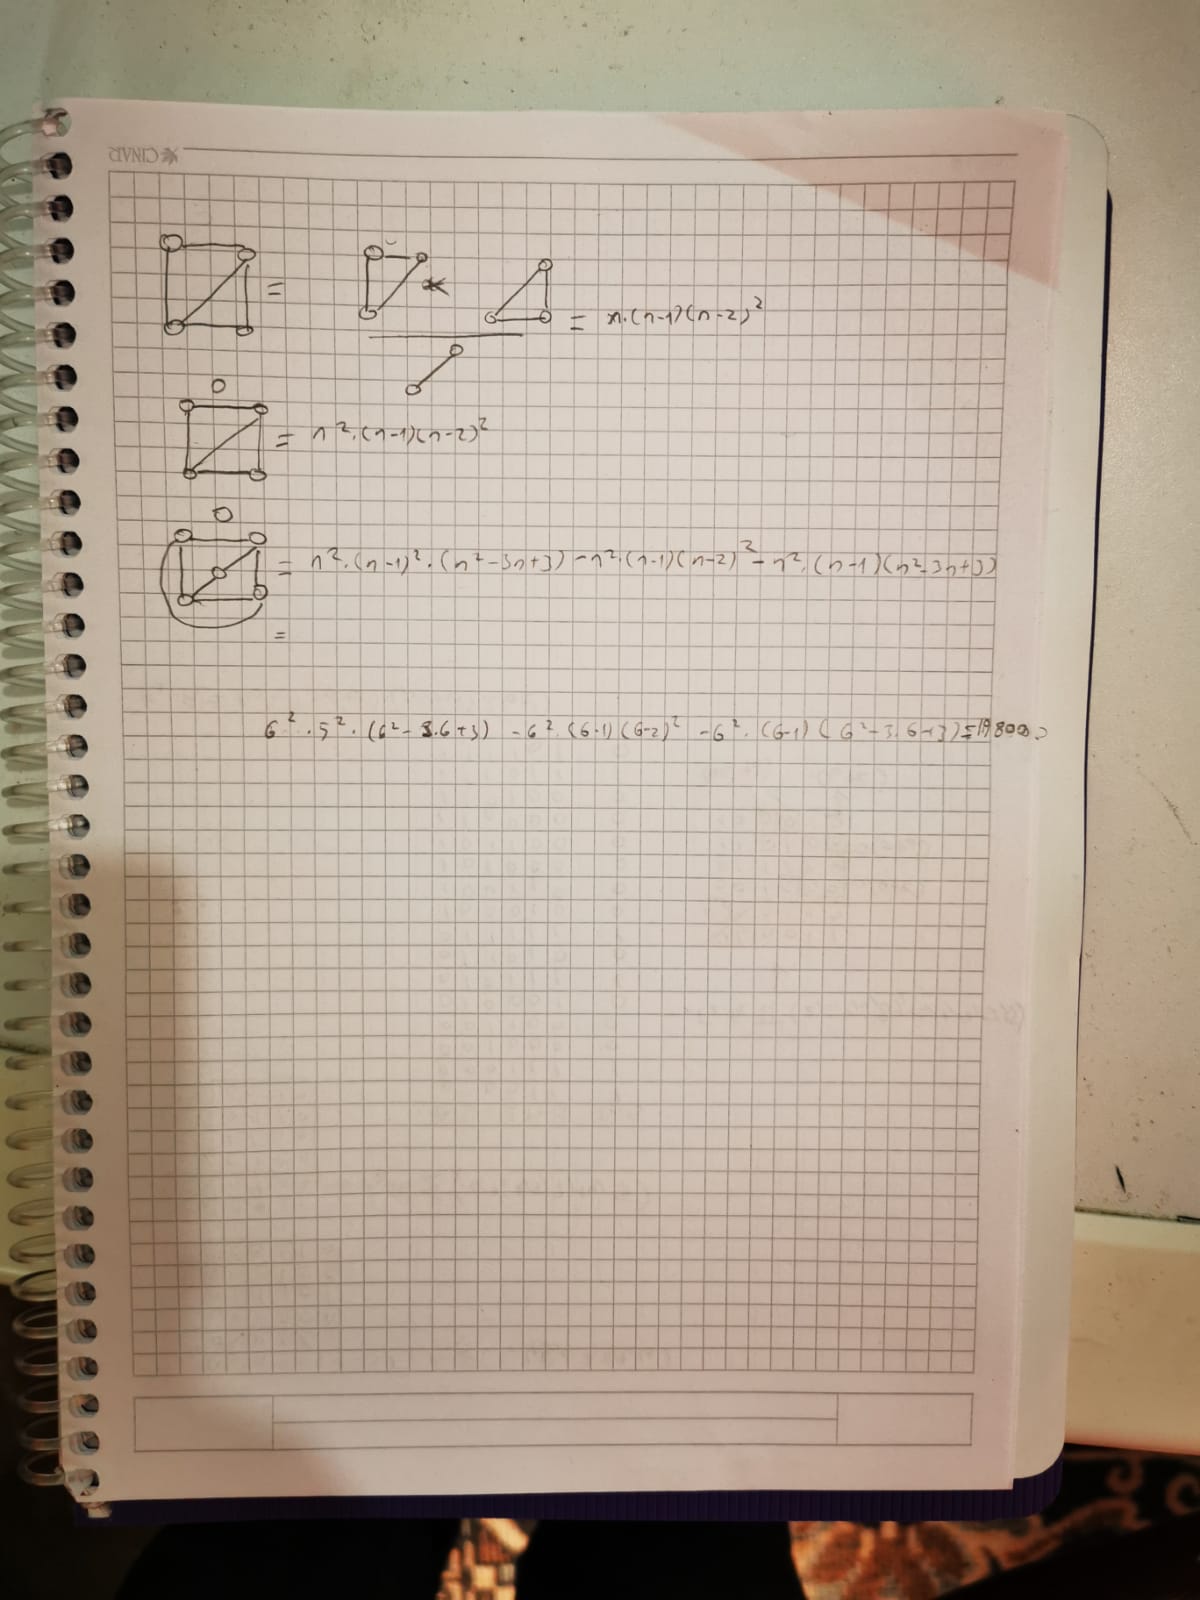 ÇINAR
= * = n.(n-1)(n-2)²
= n².(n-1)(n-2)²
= n².(n-1)².(n²-3n+3) - n².(n-1)(n-2)² - n².(n-1)(n²-3n+3)
=
6².5².(6²-3.6+3) - 6².(6-1)(6-2)² - 6².(6-1)(6²-3.6+3) =